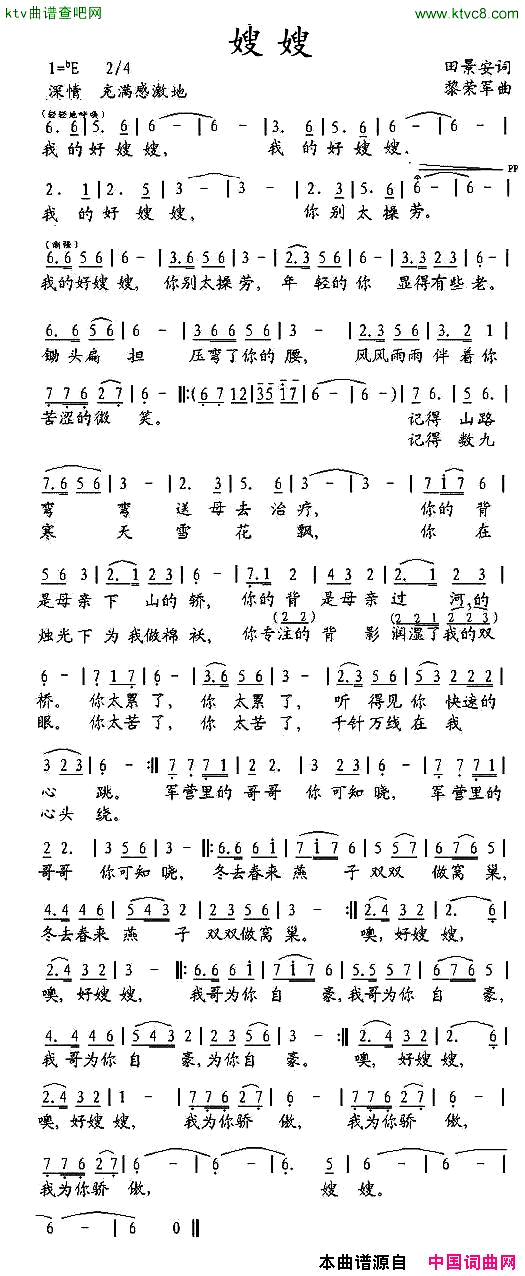 ktv曲谱查吧网
www.ktvc8.com
嫂嫂
1=♭E 2/4
田景安词
深情 充满感激地
黎荣军曲
(轻轻地呼唤)
6. 6 | 5. 6 | 6 - | 6 - | 6. 3 | 2. 3 | 3 - | 3 - |
我的好嫂嫂, 我的好嫂嫂、
PP
2. 1 | 2. 5 | 3 - | 3 - | 2. 1 | 5. 6 | 6 - | 6 - |
我的好嫂嫂, 你别太操劳。
6.6 5 6 | 6 - | 3.6 5 6 | 3 - | 2.3 5 6 | 3.3 2 3 | 6 - |
我的好嫂嫂, 你别太操劳, 年轻的你 显得有些老。
6. 6 5 6 | 6 - | 3 6 0 6 1 | 2 - | 2.3 5 6 | 3.3 2 1 |
锄头扁担 压弯了你的腰, 风风雨雨伴着你
7 7 6 2 7 | 6 - |: (6 7 12 | 35 17 | 6 - | 6 - ) | 7 6. | 5 6. |
苦涩的微笑。 记得山路
记得数九
7.6 5 6 | 3 - | 2. 3 | 5. 6 | 3 - | 3 - | 7 1 7 6 |
弯弯送母去治疗, 你的背
寒天雪花飘, 你在
5 6 3 | 2. 1 2 3 | 6 - | 7.1 2 | 3 2 3 | 2. 1 2 3 |
是母亲下山的轿, 你的背是母亲过河的
(2 2) (2 2 1 2 2 3)
烛光下为我做棉袄, 你专注的背影润湿了我的双
6 - | 7 1 7 | 6 - | 3. 5 6 | 3 - | 2.3 5 6 | 3 2 3 5 |
桥。你太累了, 你太累了, 听得见你快速的
眼。你太苦了, 你太苦了, 千针万线在我
3 2 3 | 6 - :| 7 7 7 1 | 2 2. | 3 2 3 | 6 - | 7 7 7 1 |
心跳。军营里的哥哥你可知晓, 军营里的
心头绕。
2 2. | 3 5 6 | 3 - |: 6.6 6 1 | 7 1 7 6 | 5 5 7 | 6 7 6 5 |
哥哥你可知晓, 冬去春来燕子双双做窝巢,
4.4 4 6 | 5 4 3 | 2 2 3 5 6 | 3 - :| 2. 4 3 2 | 2. 6 |
冬去春来燕子双双做窝巢。噢, 好嫂嫂,
2.4 3 2 | 3 - |: 6.6 6 1 | 7 1 7 6 | 5.5 5 7 | 6 7 6 5 |
噢, 好嫂嫂, 我哥为你自豪, 我哥为你自豪,
4. 4 4 6 | 5 4 3 | 2 3 5 6 | 3 - :| 2. 4 3 2 | 2. 6 |
我哥为你自豪, 为你自豪。噢, 好嫂嫂,
2.4 3 2 | 1 - | 7 7 6 2 7 | 6 - | 7 7 6 2 7 | 6 - |
噢, 好嫂嫂, 我为你骄傲, 我为你骄傲,
7 7 6 2 7 | 6 - | 6 - | 6 - | 6. 3 | 5. 6 | 6 - |
我为你骄傲, 嫂嫂。
6 - | 6 - | 6 0 ‖
本曲谱源自 中国词曲网